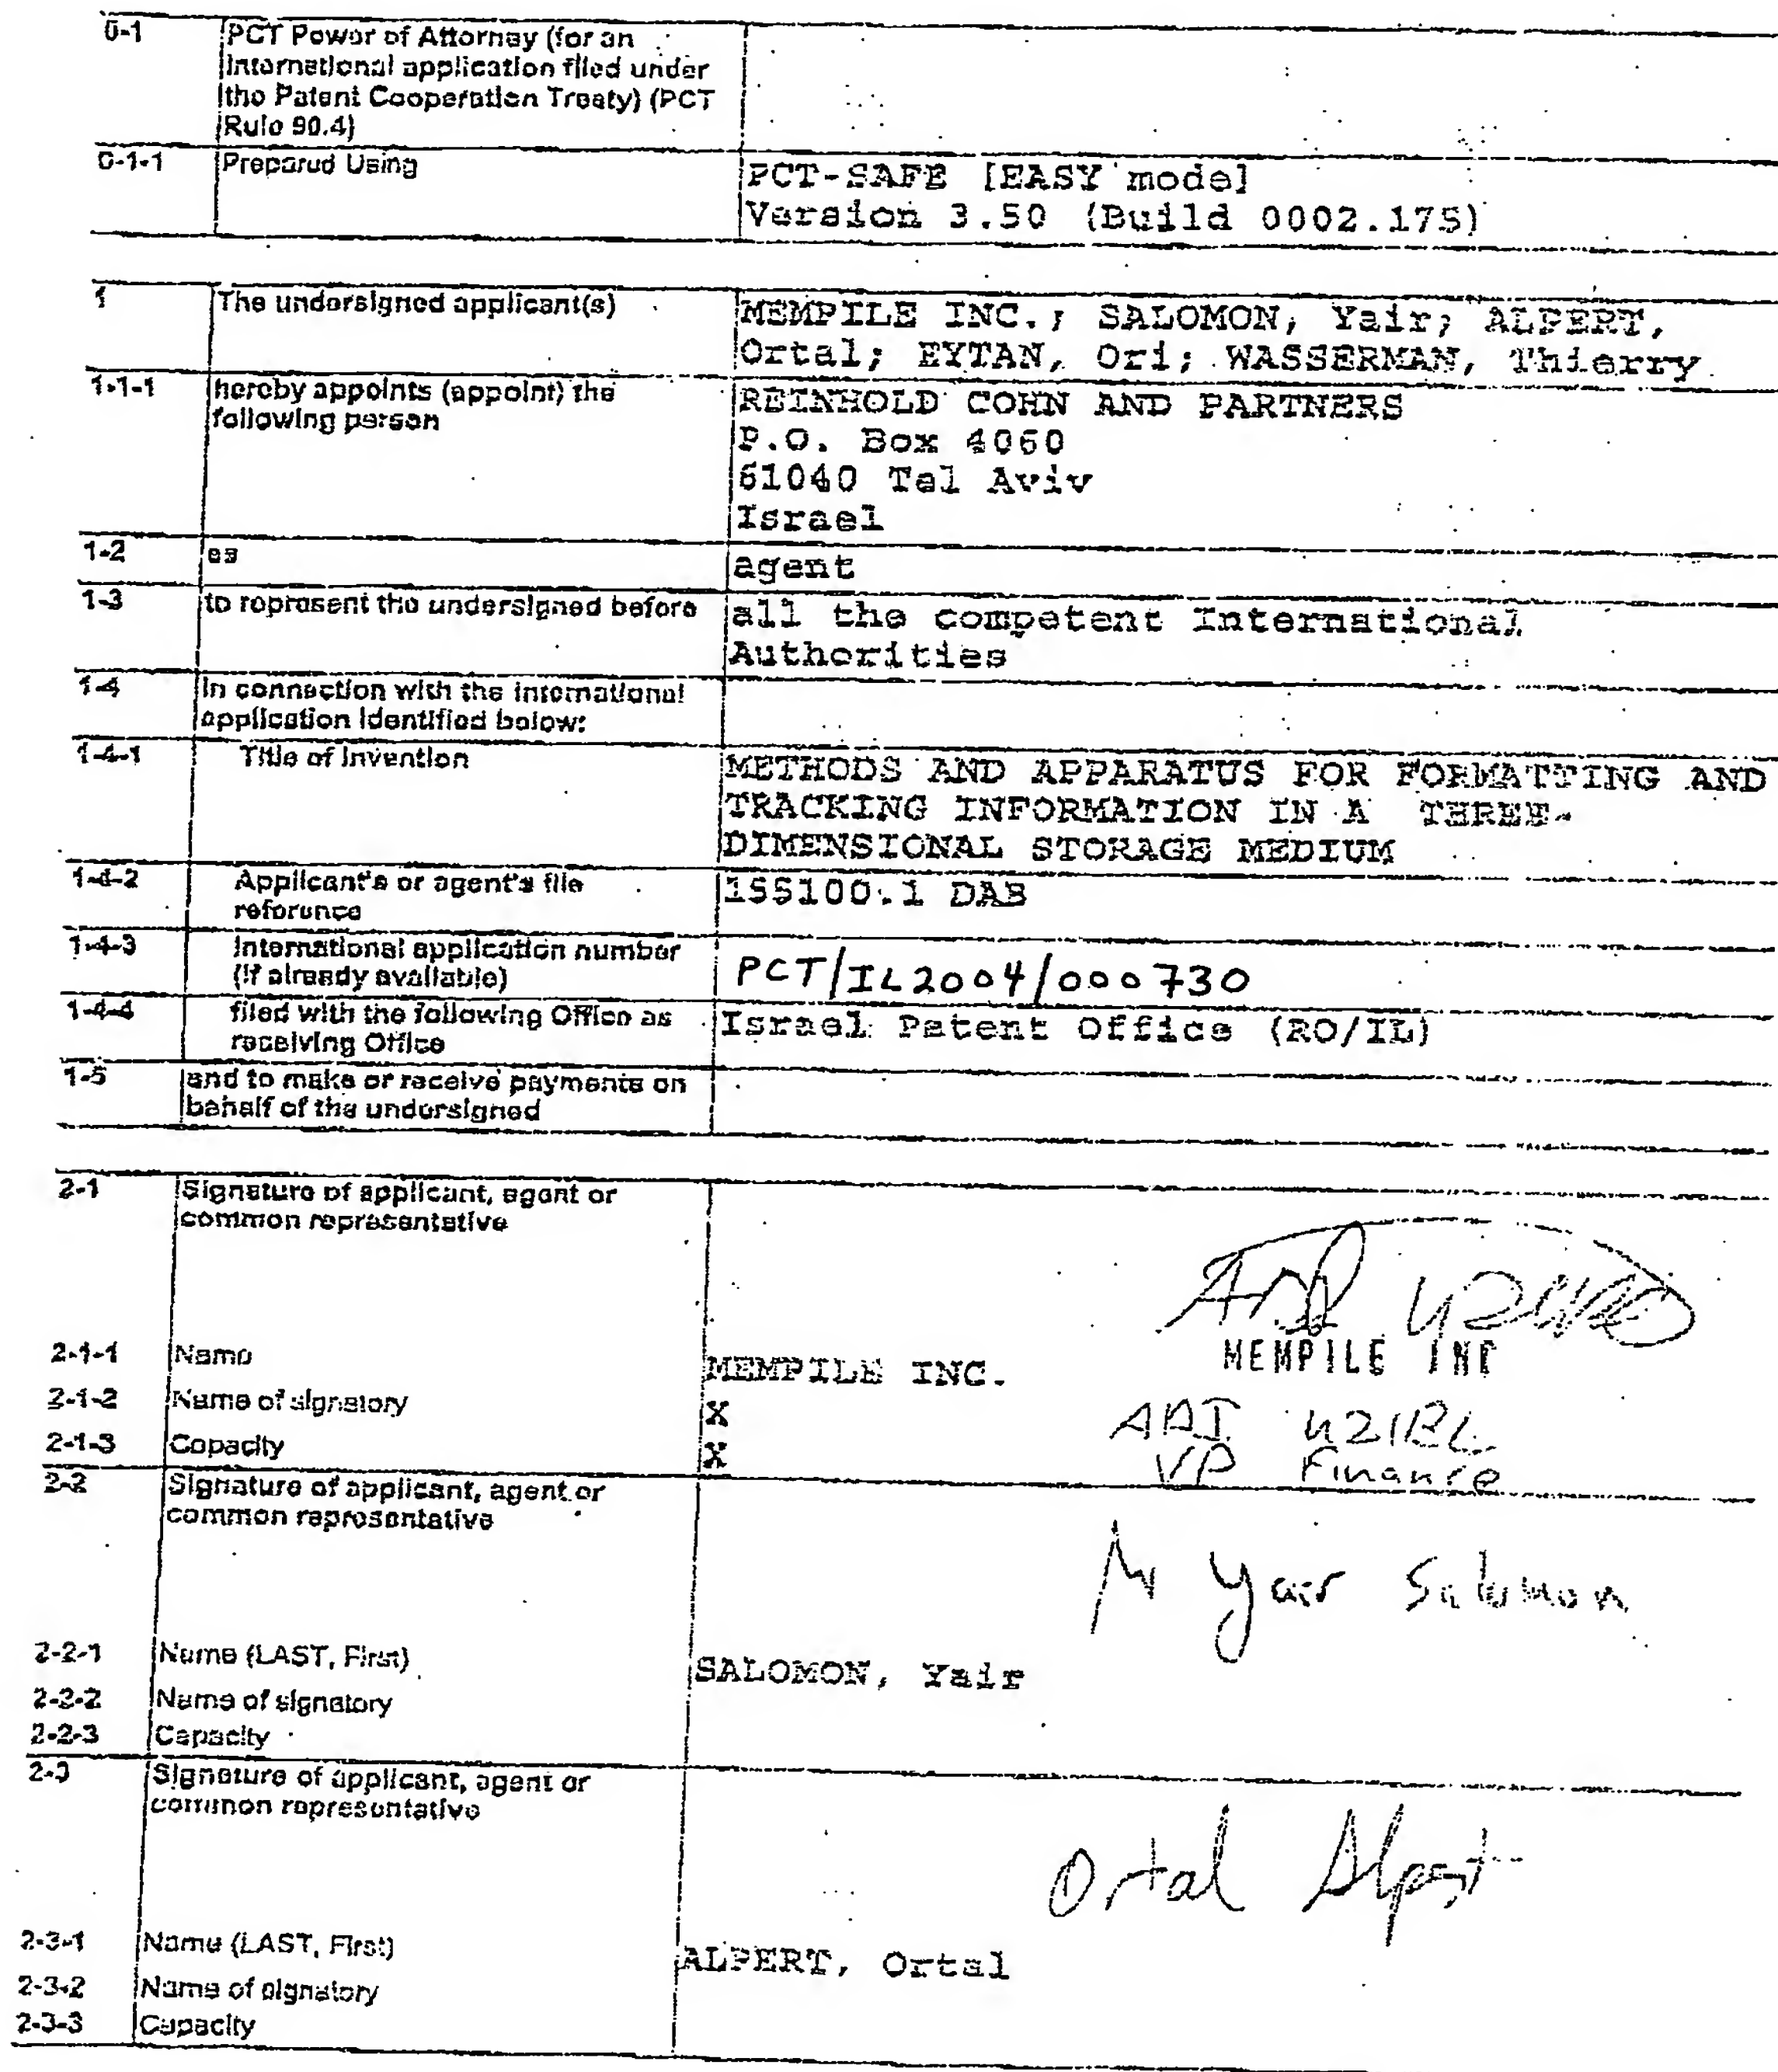 0-1 PCT Power of Attorney (for an
International application filed under
the Patent Cooperation Treaty) (PCT
Rule 90.4)
0-1-1 Prepared Using PCT-SAFE [EASY mode]
Version 3.50 (Build 0002.175)
1 The undersigned applicant(s) MEMPILE INC.; SALOMON, Yair; ALPERT,
Ortal; EYTAN, Ori; WASSERMAN, Thierry
1-1-1 hereby appoints (appoint) the
following person
REINHOLD COHN AND PARTNERS
P.O. Box 4060
61040 Tel Aviv
Israel
1-2 as agent
1-3 to represent the undersigned before all the competent International
Authorities
1-4 in connection with the international
application identified below:
1-4-1 Title of Invention METHODS AND APPARATUS FOR FORMATTING AND
TRACKING INFORMATION IN A THREE-
DIMENSIONAL STORAGE MEDIUM
1-4-2 Applicant's or agent's file
reference
155100.1 DAB
1-4-3 International application number
(if already available)
PCT/IL2004/000730
1-4-4 filed with the following Office as
receiving Office
Israel Patent Office (RO/IL)
1-5 and to make or receive payments on
behalf of the undersigned
2-1 Signature of applicant, agent or
common representative
MEMPILE INC
2-1-1 Name MEMPILE INC.
2-1-2 Name of signatory X ADI
2-1-3 Capacity X VP Finance
2-2 Signature of applicant, agent or
common representative
Yair Salomon
2-2-1 Name (LAST, First) SALOMON, Yair
2-2-2 Name of signatory
2-2-3 Capacity
2-3 Signature of applicant, agent or
common representative
Ortal Alpert
2-3-1 Name (LAST, First) ALPERT, Ortal
2-3-2 Name of signatory
2-3-3 Capacity